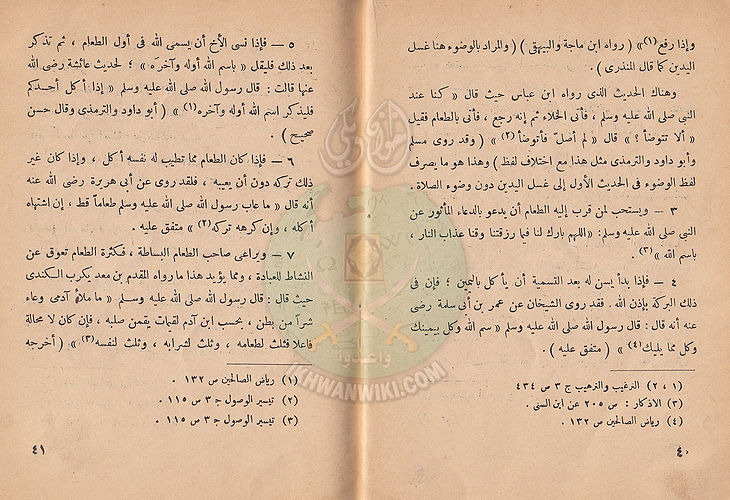 وإذا رفع (١) » ( رواه ابن ماجة والبيهقى ) ( والمراد بالوضوء هنا غسل
اليدين كما قال المنذرى ) .
وهناك الحديث الذى رواه ابن عباس حيث قال « كنا عند
النبي صلى الله عليه وسلم ، فأتى الخلاء ثم إنه رجع ، فأتى بالطعام فقيل
« ألا تتوضأ ؟ » قال « لم أصل فأتوضأ (٢) » ( وقد روى مسلم
وأبو داود والترمذى مثل هذا مع اختلاف لفظ ) وهذا هو ما يصرف
لفظ الوضوء فى الحديث الأول إلى غسل اليدين دون وضوء الصلاة .
٣ — ويستحب لمن قرب إليه الطعام أن يدعو بالدعاء المأثور عن
النبي صلى الله عليه وسلم: «اللهم بارك لنا فيما رزقتنا وقنا عذاب النار ،
باسم الله » (٣) .
٤ — فإذا بدأ يسن له بعد التسمية أن يأكل باليمين ؛ فإن فى
ذلك البركة بإذن الله . فقد روى الشيخان عن عمر بن أبى سلمة رضى
عنه أنه قال : قال رسول الله صلى الله عليه وسلم « سم الله وكل بيمينك
وكل مما يليك (٤) » ( متفق عليه ) .
(١ ، ٢) الترغيب والترهيب ج ٣ ص ٤٣٤
(٣) الاذكار : ص ٢٠٥ عن ابن السنى .
(٤) رياض الصالحين ص ١٣٢ .
٤٠
٥ — فإذا نسى الأخ أن يسمى الله فى أول الطعام ، ثم تذكر
بعد ذلك فليقل « باسم الله أوله وآخره » ؛ لحديث عائشة رضى الله
عنها قالت : قال رسول الله صلى الله عليه وسلم « إذا أكل أحدكم
فليذكر اسم الله أوله وآخره (١) » ( أبو داود والترمذى وقال حسن
صحيح ) .
٦ — فإذا كان الطعام مما تطيب له نفسه أكل ، وإذا كان غير
ذلك تركه دون أن يعيبه ، فلقد روى عن أبى هريرة رضى الله عنه
أنه قال « ما عاب رسول الله صلى الله عليه وسلم طعاماً قط ، إن اشتهاه
أكله ، وإن كرهه تركه (٢) » متفق عليه .
٧ — ويراعى صاحب الطعام البساطة ، فكثرة الطعام تعوق عن
النشاط للعبادة ، ومما يؤيد هذا ما رواه المقدم بن معد يكرب الكندى
حيث قال : قال رسول الله صلى الله عليه وسلم « ما ملأ آدمى وعاء
شراً من بطن ، بحسب ابن آدم لقيمات يقمن صلبه ، فإن كان لا محالة
فاعلا فثلث لطعامه ، وثلث لشرابه ، وثلث لنفسه (٣) » ( أخرجه
(١) رياض الصالحين ص ١٣٢ .
(٢) تيسير الوصول ج ٣ ص ١١٥ .
(٣) تيسير الوصول ج ٣ ص ١١٥ .
٤١
وأعدوا
IKHWANWIKI.COM